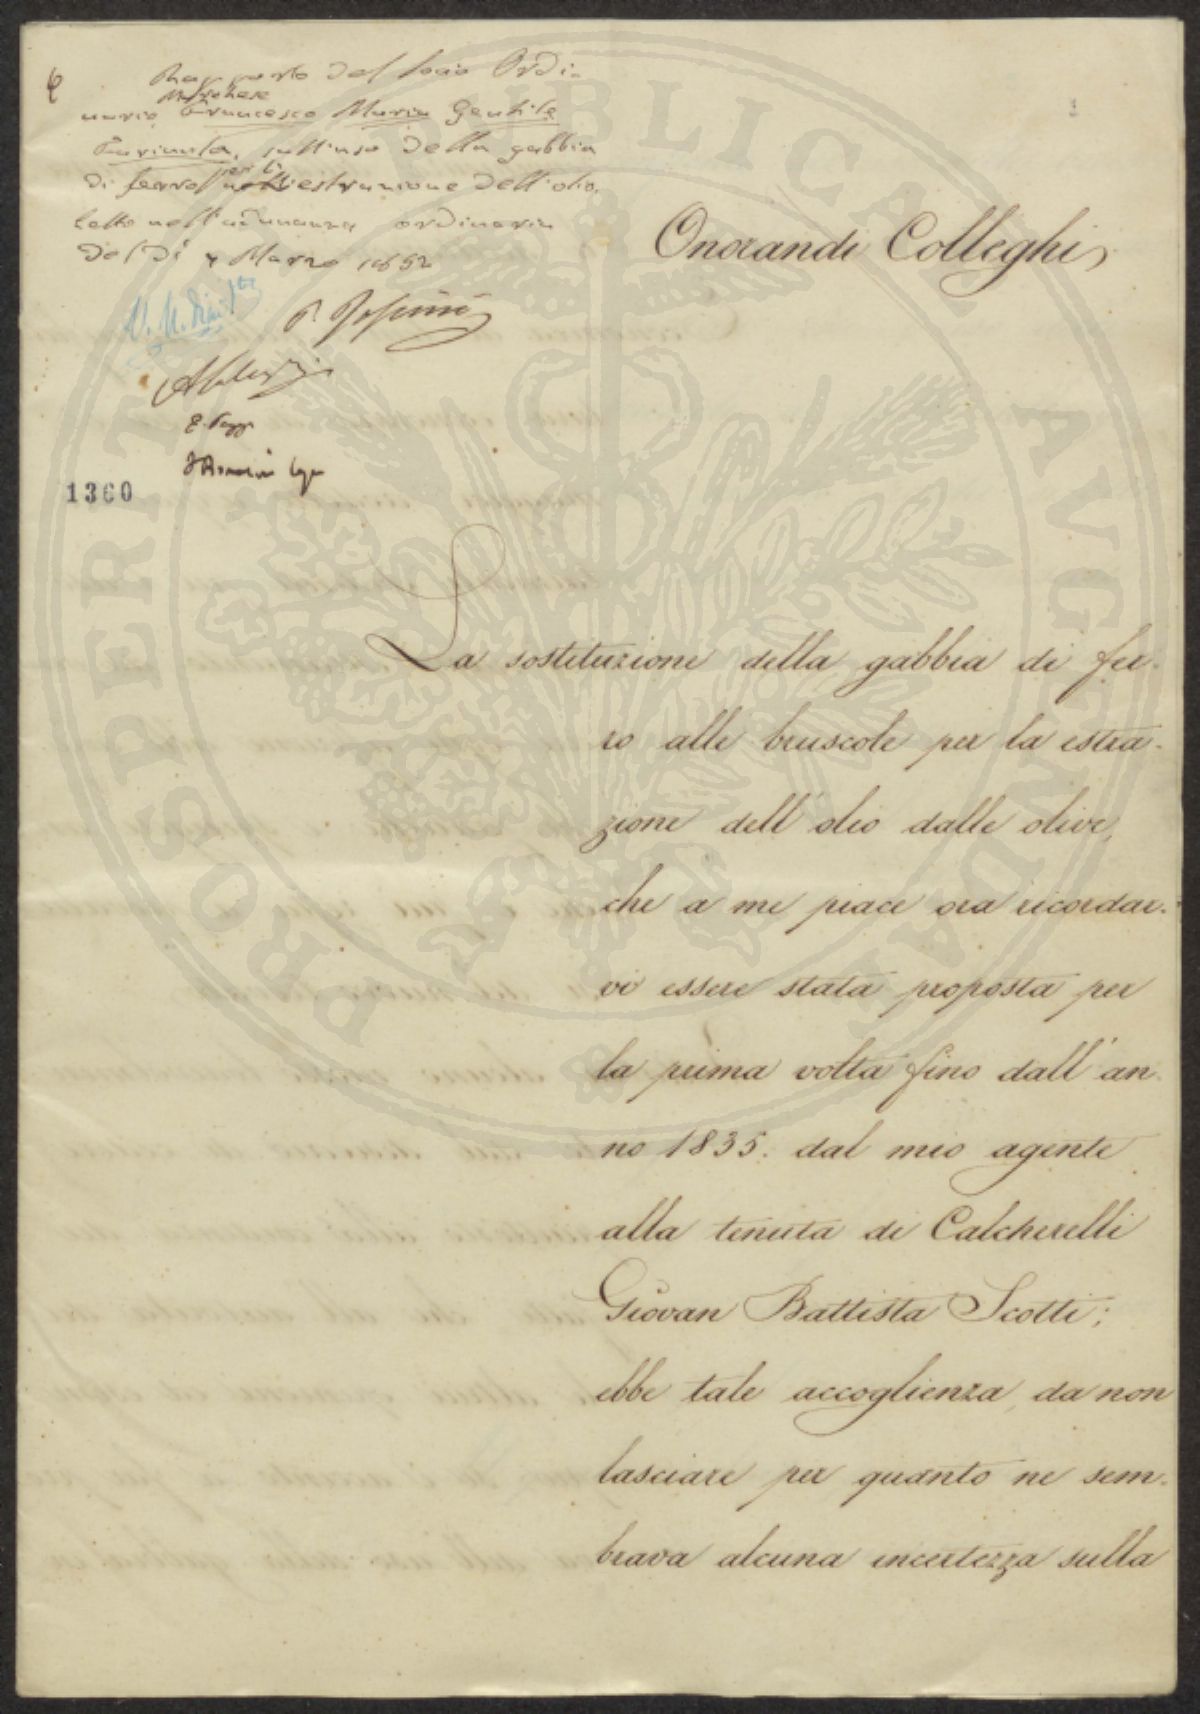 Rapporto del Socio Ordi-
nario Marchese Francesco Maria Gentile
Farinola, sull'uso della gabbia
di ferro per l'estrazione dell'olio.
Letto nell'adunanza ordinaria
del dì 4 Marzo 1852
1360
Onorandi Colleghi
La sostituzione della gabbia di fer-
ro alle bruscole per la estra-
zione dell'olio dalle olive,
che a me piace ora ricordar-
vi essere stata proposta per
la prima volta fino dall'an-
no 1835. dal mio agente
alla tenuta di Calcherelli
Giovan Battista Scotti;
ebbe tale accoglienza, da non
lasciare per quanto ne sem-
brava alcuna incertezza sulla
PROSPERITATI PUBLICAE AUGENDAE